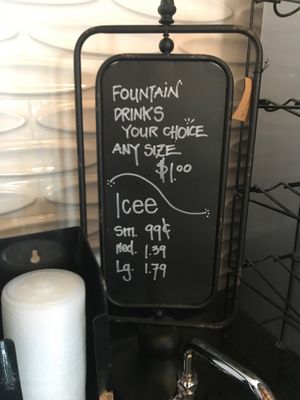 FOUNTAIN
DRINKS
YOUR CHOICE
ANY SIZE
$1.00
Icee
sm. 99¢
Med. 1.39
Lg. 1.79